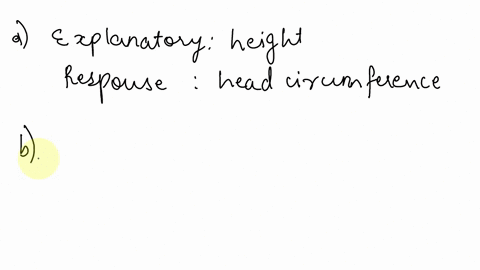 a) Explanatory: height
Response : head circumference
b).